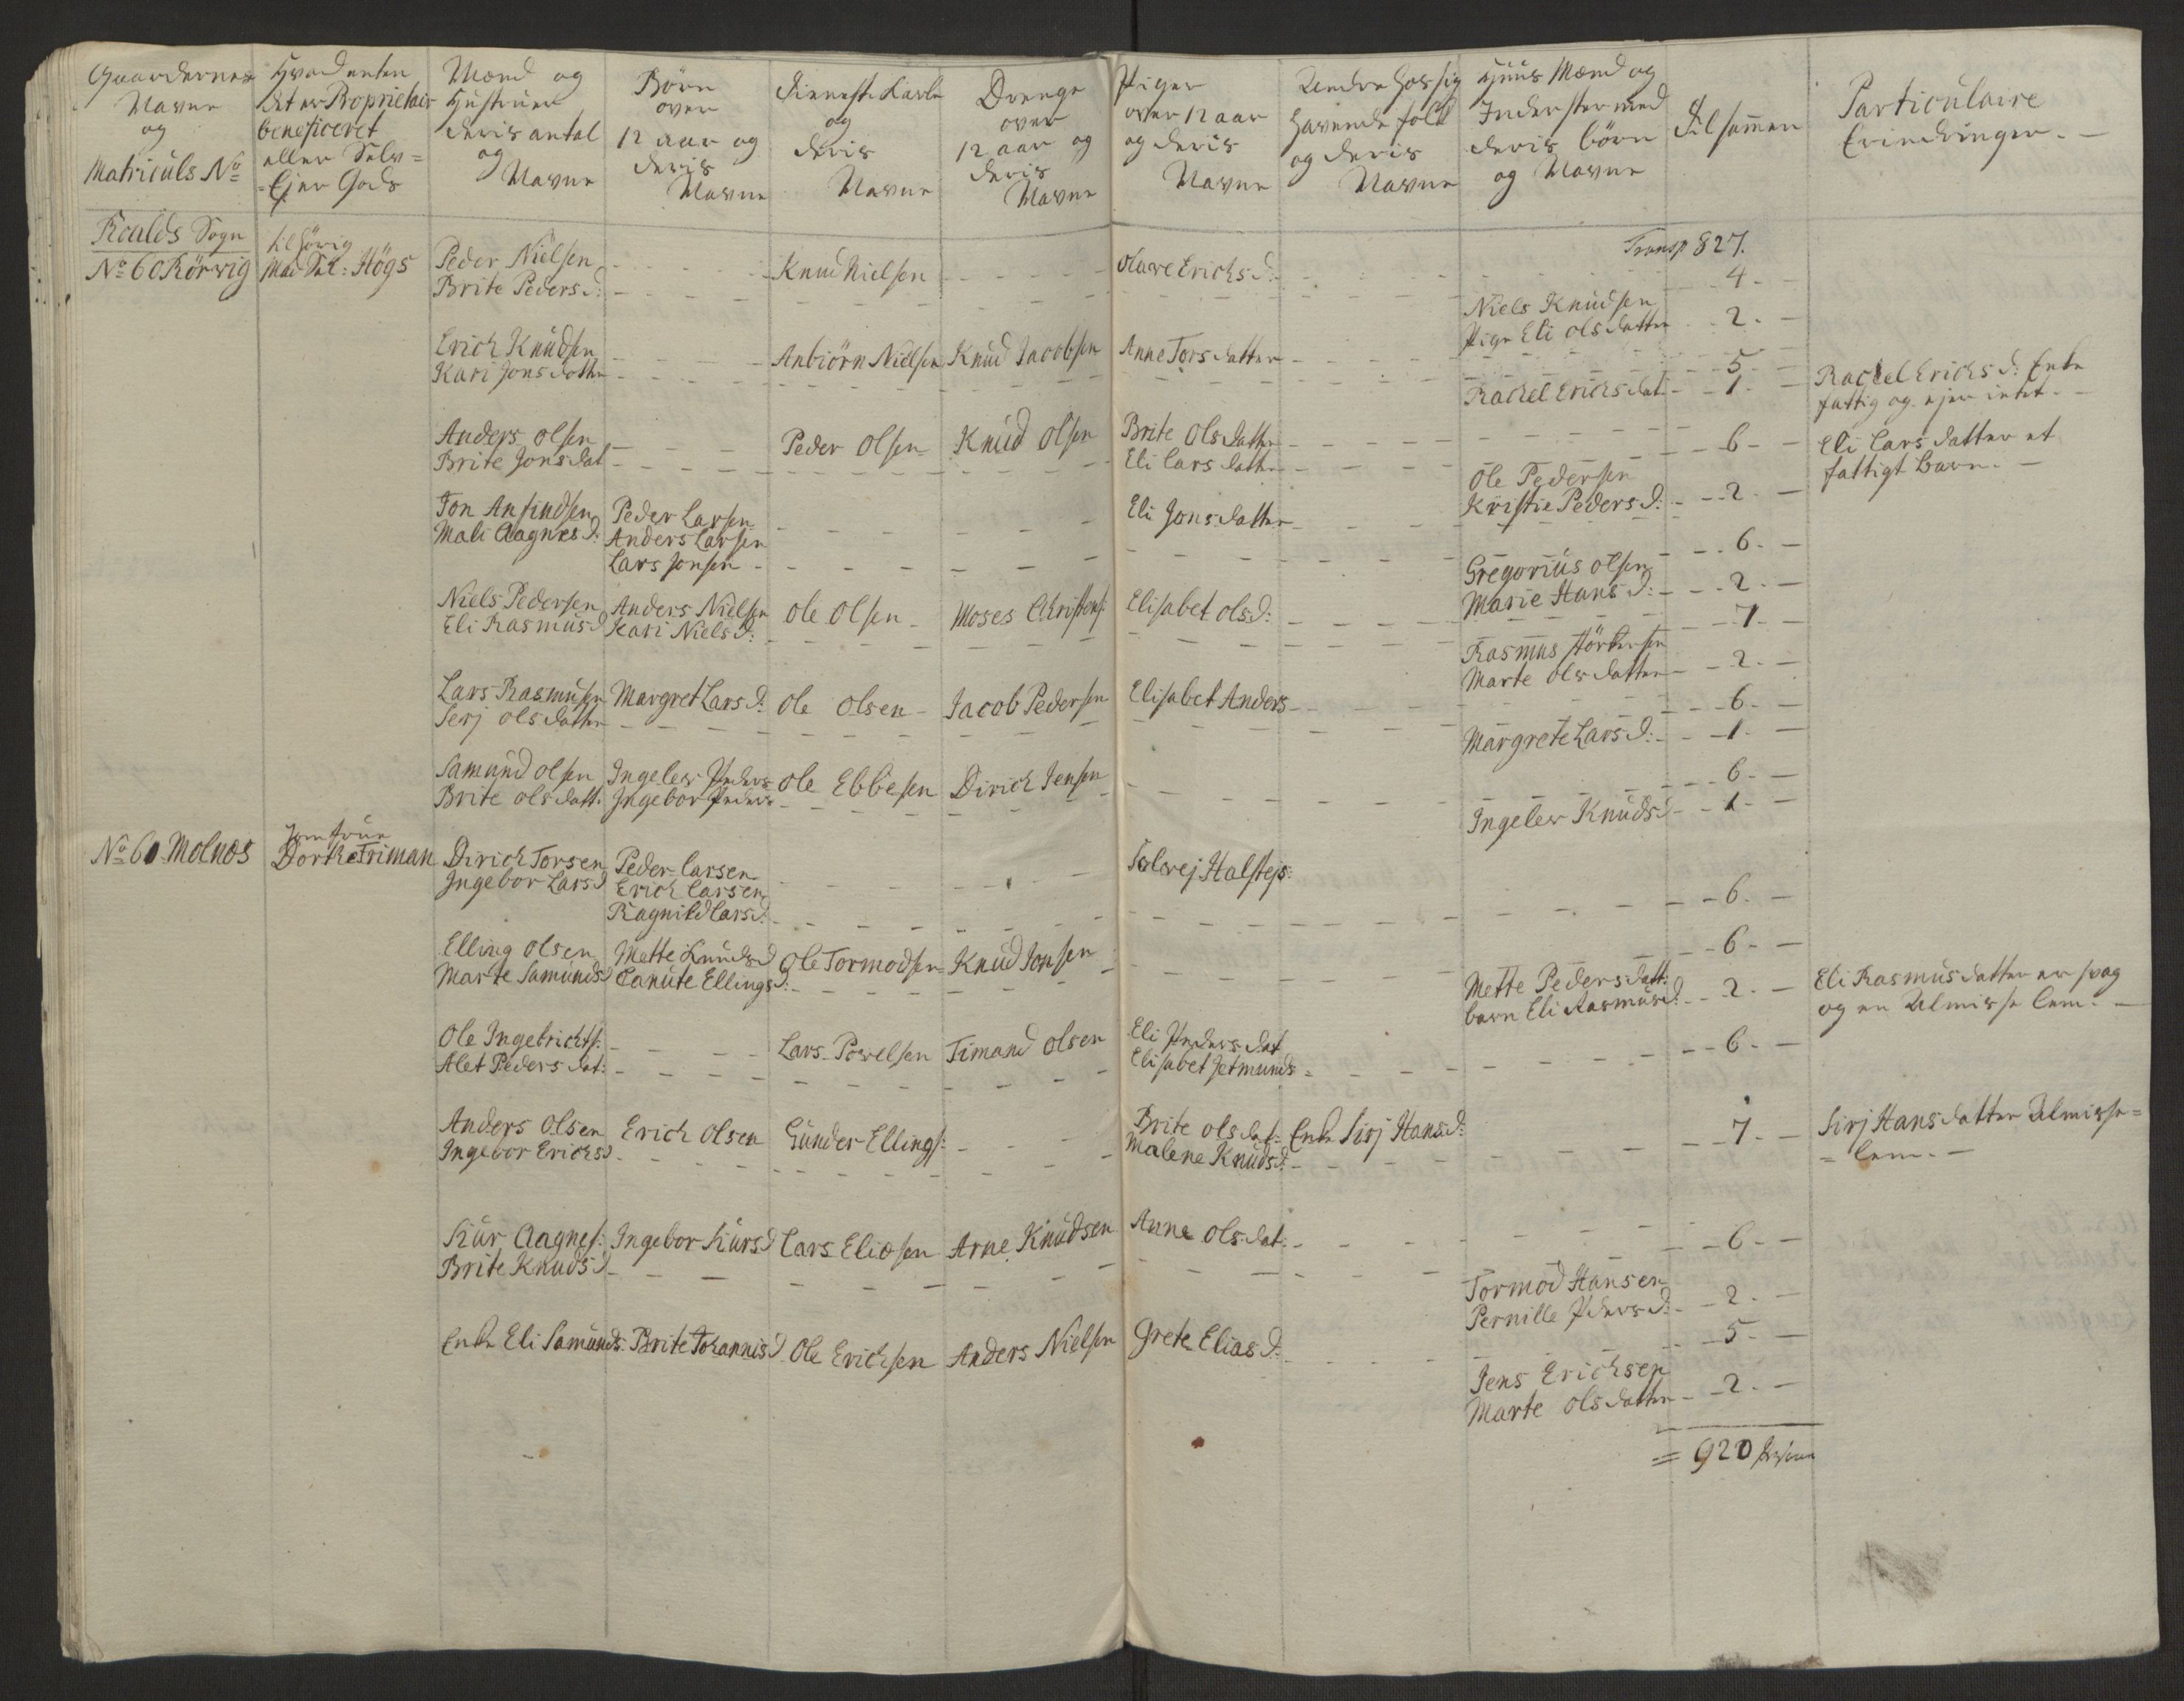 Gaardernes
Navne
og
Matriculs No
Hvad enten
det er Proprietair
beneficeret
eller Selv=
=Ejer Gods
Mænd og
Hustruer
deris antal
og
Navne
Börn
over
12 aar og
deris
Navne
Tienneste Karle
og
deris
Navne
Drenge
over
12 aar og
deris
Navne
Piger
over 12 aar
og deris
Navne
Andre hos sig
havende folk
og deris
Navne
Huus Mænd og
Inderster med
deris börn
og Navne
Tilsammen
Particulaire
Erindringer. —
Roalds Sogn
Transp 827.
No 60 Rörvig
tilhörig
Mad Sal: Högs
Peder Nielsen
Brite Peders d:
Knud Nielsen
Olave Erichs d:
4.
Niels Knudsen
Pige Eli Olsdatter
2.
Erich Knudsen
Kari Jonsdatter
Anbiörn Nielsen
Knud Jacobsen
Anne Torsdatter
5
Rachel Erichsdat:
1.
Rachel Erichs d: Enke
fattig og ejer intet.
Anders Olsen
Brite Jonsdat
Peder Olsen
Knud Olsen
Brite Olsdatter
Eli Larsdatter
6
Eli Larsdatter et
fattigt Barn. —
Ole Pedersen
Kristie Peders d:
2.
Jon Anfindsen
Mali Aagnes d:
Peder Larsen
Anders Larsen
Lars Jonsen
Eli Jonsdatter
6.
Gregorius Olsen
Marie Hans d:
2.
Niels Pedersen
Eli Rasmus d
Anders Nielsen
Kari Niels d:
Ole Olsen
Moses Christens:
Elisabet Ols d:
7
Rasmus Störkersen
Marte Olsdatter
2.
Lars Rasmusen
Serj Olsdatter
Margret Lars d:
Ole Olsen
Jacob Pedersen
Elisabet Anders
6.
Margrete Lars d:
1.
Samund Olsen
Brite Olsdatt.
Ingelev Peders
Ingebor Peders
Ole Ebbesen
Dirich Jensen
6.
Ingelev Knuds d
1.
No 61. Molnes
Jomfrue
Dorthe Friman
Dirich Torsen
Ingebor Lars d
Peder Larsen
Erich Larsen
Ragnild Lars d:
Tolvej Halstejs:
6.
Elling Olsen
Marte Samunds d
Mette Knuds d
Canute Ellings d:
Ole Tormodsen
Knud Jonsen
6
Mette Pedersdatt:
barn Eli Rasmus d:
2.
Eli Rasmusdatter er svag
og en Almisse lem. —
Ole Ingebrichts:
Alet Pedersdat:
Lars Powelsen
Timand Olsen
Eli Pedersdat
Elisabet Jetmunds
6.
Anders Olsen
Ingebor Erichs d
Erich Olsen
Gunder Ellings:
Brite Olsdat:
Malene Knuds d:
Enke Sirj Hans d:
7.
Sirj Hansdatter Almisse=
=lem. —
Siur Aagnes:
Brite Knuds d
Ingebor Siurs d
Lars Eliesen
Arne Knudsen
Anne Olsdat:
6.
Tormod Hansen
Pernille Peders d:
2.
Enke Eli Samunds:
Brite Johannis d
Ole Erichsen
Anders Nielsen
Grete Elias d:
5
Jens Erichsen
Marte Olsdatter
2.
= 920 Personer